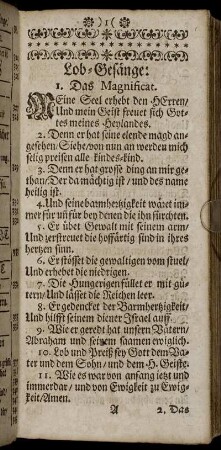 1
Lob-Gesänge:
1. Das Magnificat.
MEine Seel erhebt den HErren/
Und mein Geist freuet sich Got-
tes meines Heylandes.
2. Denn er hat seine elende magd an-
gesehen/Siehe/von nun an werden mich
selig preisen alle kindes-kind.
3. Denn er hat grosse ding an mir ge-
than/Der da mächtig ist/und des name
heilig ist.
4. Und seine barmhertzigkeit wäret im-
mer für uñ für bey denen die ihn fürchten.
5. Er übet Gewalt mit seinem arm/
Und zerstreuet die hoffärtig sind in ihres
hertzen sinn.
6. Er stösset die gewaltigen vom stuel/
Und erhebet die niedrigen.
7. Die Hungerigen füllet er mit gü-
tern/Und lässet die Reichen leer.
8. Er gedencket der Barmhertzigkeit/
Und hilfft seinem diener Israel auff.
9. Wie er geredt hat unsern Vätern/
Abraham und seinem saamen ewiglich.
10. Lob und Preiß sey Gott dem Va-
ter und dem Sohn/und dem H. Geiste.
11. Wie es war von anfang ietzt und
immerdar/und von Ewigkeit zu Ewig-
keit/Amen.
A 2. Das